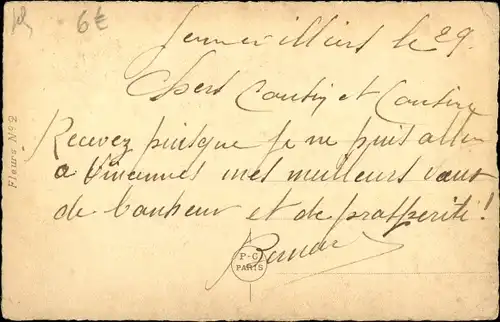 6€
Gennevilliers le 29.
Chers Cousin et Cousine
Recevez puisque je ne puis aller
a Vincennes mes meilleurs vœux
de bonheur et de prosperité !
P-C
PARIS
Fleurs Nº 2